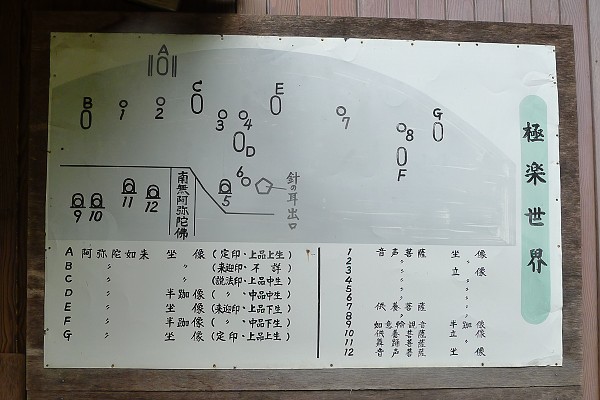 極楽世界
A
B
1
2
C
3
4
D
E
7
8
F
G
6
5
針の耳出口
南無阿弥陀佛
9
10
11
12
A 阿弥陀如来 坐像 (定印・上品上生)
B 〃 〃 (来迎印・不詳)
C 〃 〃 (説法印・上品中生)
D 〃 半跏像 (〃・中品中生)
E 〃 坐像 (来迎印・上品下生)
F 〃 半跏像 (〃・中品下生)
G 〃 坐像 (定印・上品上生)
1 音声菩薩 坐像
2 〃 立像
3 〃 〃
4 〃 〃
5 〃 〃
6 〃 〃
7 供養菩薩 〃
8 〃 〃
9 如意輪観音 半跏像
10 供養菩薩 立像
11 舞踊菩薩 〃
12 音声菩薩 坐像